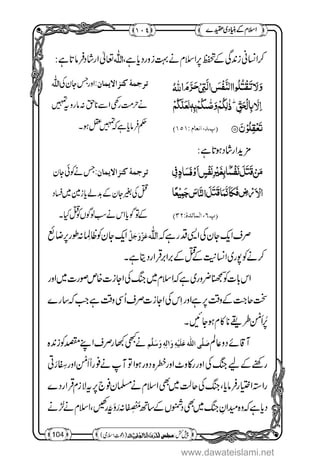 اسلام کے بنیادی عقیدے
(۱۰٤)
کر انسانی زندگی کے تحفظ پر اسلام نے بہت زور دیا ہے، اللہ تعالیٰ ارشاد فرماتا ہے:
وَلَا تَقْتُلُوا النَّفْسَ الَّتِیْ حَرَّمَ اللّٰهُ
اِلَّا بِالْحَقِّ ؕ ذٰلِكُمْ وَصّٰىكُمْ بِهٖ لَعَلَّكُمْ
تَعْقِلُوْنَ
(پ۸، انعام: ۱۵۱)
ترجمۂ کنز الایمان: اور جس جان کی اللہ
نے حرمت رکھی اسے ناحق نہ مارو یہ تمہیں
حکم فرمایا ہے کہ تمہیں عقل ہو۔
مزید ارشاد ہوتا ہے:
مَنْ قَتَلَ نَفْسًۢا بِغَیْرِ نَفْسٍ اَوْ فَسَادٍ فِی
الْاَرْضِ فَكَاَنَّمَا قَتَلَ النَّاسَ جَمِیْعًا
(پ٦، المائدة: ۳۲)
ترجمۂ کنز الایمان: جس نے کوئی جان
قتل کی بغیر جان کے بدلے یا زمین میں فساد
کے تو گویا اس نے سب لوگوں کو قتل کیا۔
صرف ایک جان کی ایسی قدر ہے کہ اللہ عَزَّوَجَلَّ ایک جان کو ظالمانہ طور پر ضائع
کرنے کو پوری انسانیت کے قتل کے برابر قرار دیتا ہے۔
اس بات کو سمجھنا ضروری ہے کہ اسلام میں جنگ کی اجازت خاص صورت میں اور
سخت حاجت کے وقت پر ہے اور اس کی اجازت صرف اُسی وقت ہے جب کہ سارے
پُراَمْن طریقے ناکام ہوجائیں۔
آقائے دو عالم صَلَّی اللہُ عَلَیْہِ وَاٰلِہٖ وَسَلَّم نے کبھی بھار صرف اپنے مقصد کو زندہ
رکھنے کے لیے جنگ کی اور رکاوٹ اور خطرہ دور ہوا تو آپ نے فوراً اَمْن اور سِفارتی
راستہ اختیار فرمایا، جنگ کی حالت میں بھی اسلام نے مسلمان فوج پر یہ لازم قرار دے
دیا ہے کہ وہ میدانِ جنگ میں بھی دشمنوں کے ساتھ منصفانہ رَوَیّہ رکھیں، اسلام نے لڑنے
104
پیش کش: مجلس
(دعوتِ اسلامی)
www.dawateislami.net